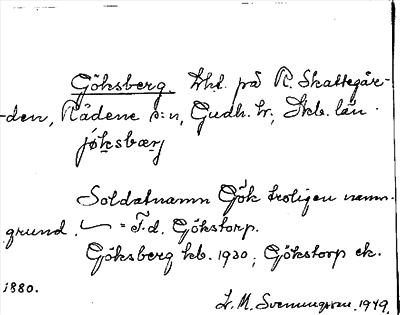 Göksberg. lht. på R. Skattegår-
-den, Rådene s:n, Gudh. hr; Skb. län.
jøksbærj
Soldatnamn Gök troligen namn-
grund. = F.d. Gökstorp.
Göksberg kb. 1930; Gökstorp ek.
1880.
L. M. Svenungsson. 1949.